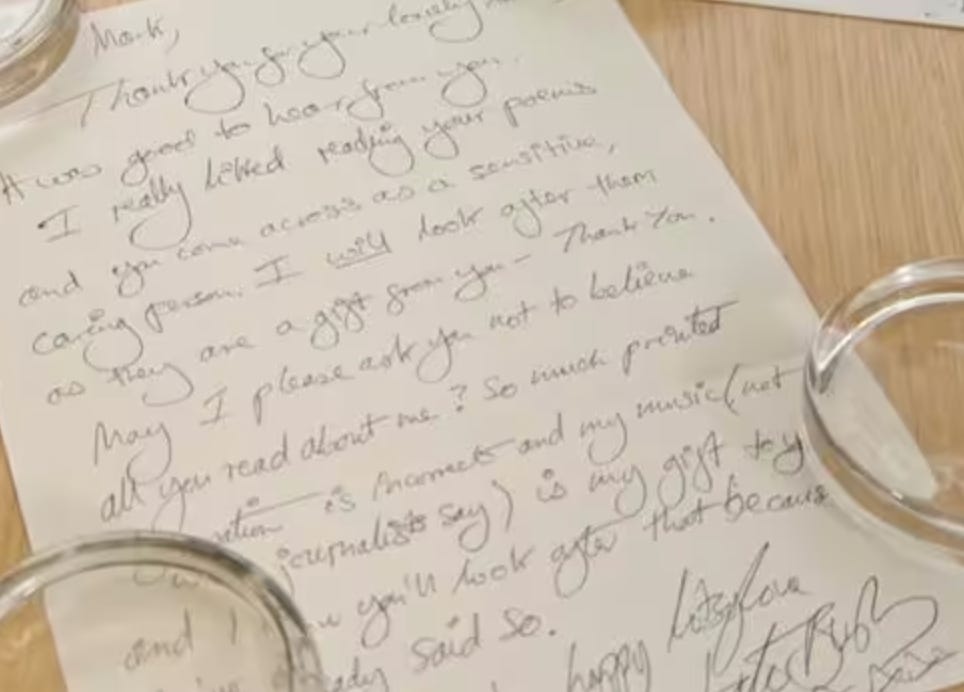 Mark,
Thank you for your lovely
It was good to hear from you.
I really liked reading your poems
and you come across as a sensitive,
caring person. I will look after them
as they are a gift from you - Thank You.
May I please ask you not to believe
all you read about me? So much printed
is incorrect and my music (not
journalists say) is my gift to
and I you'll look after that because
said so.
happy